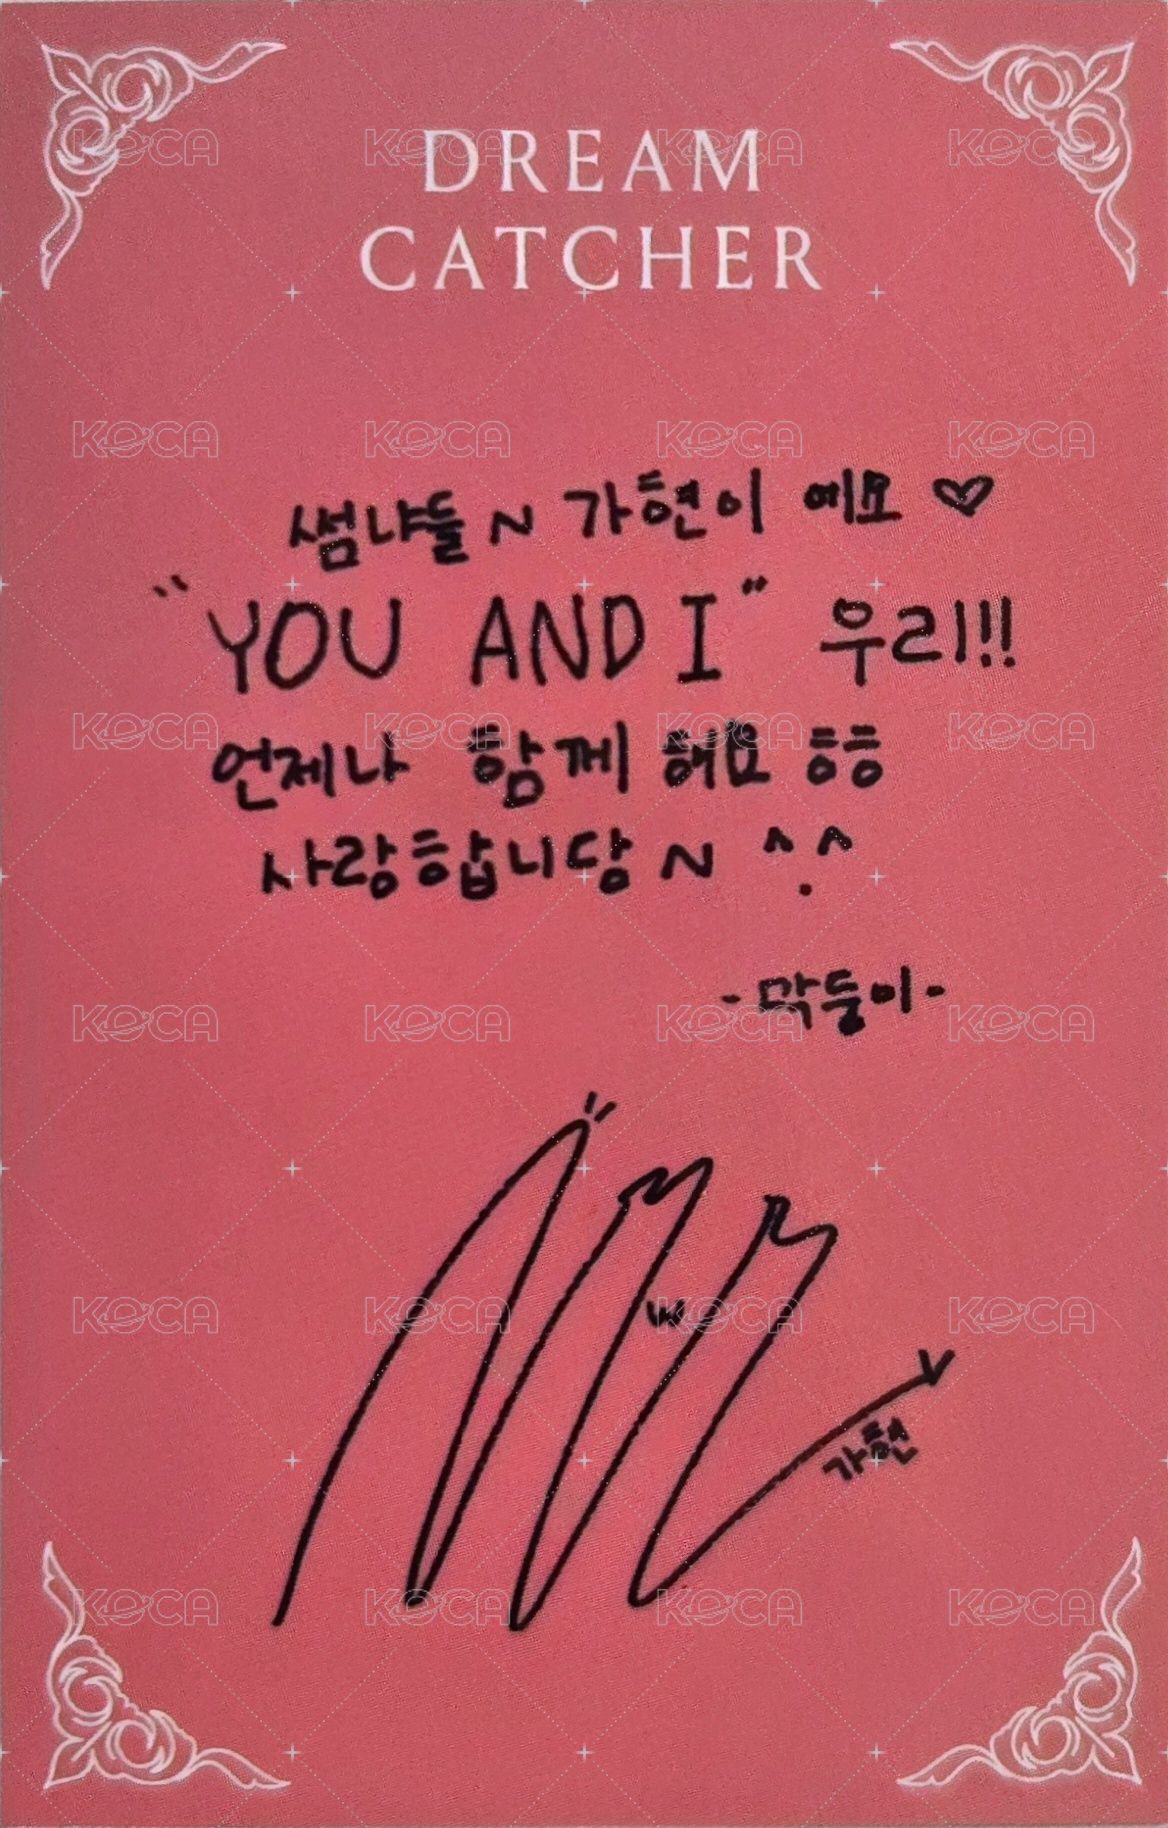 DREAM
CATCHER
썸냐들~ 가현이 예요 ♡
"YOU AND I" 우리!!
언제나 함께 해요 ㅎㅎ
사랑합니당~ ^.^
-막둥이-
가현
KOCA